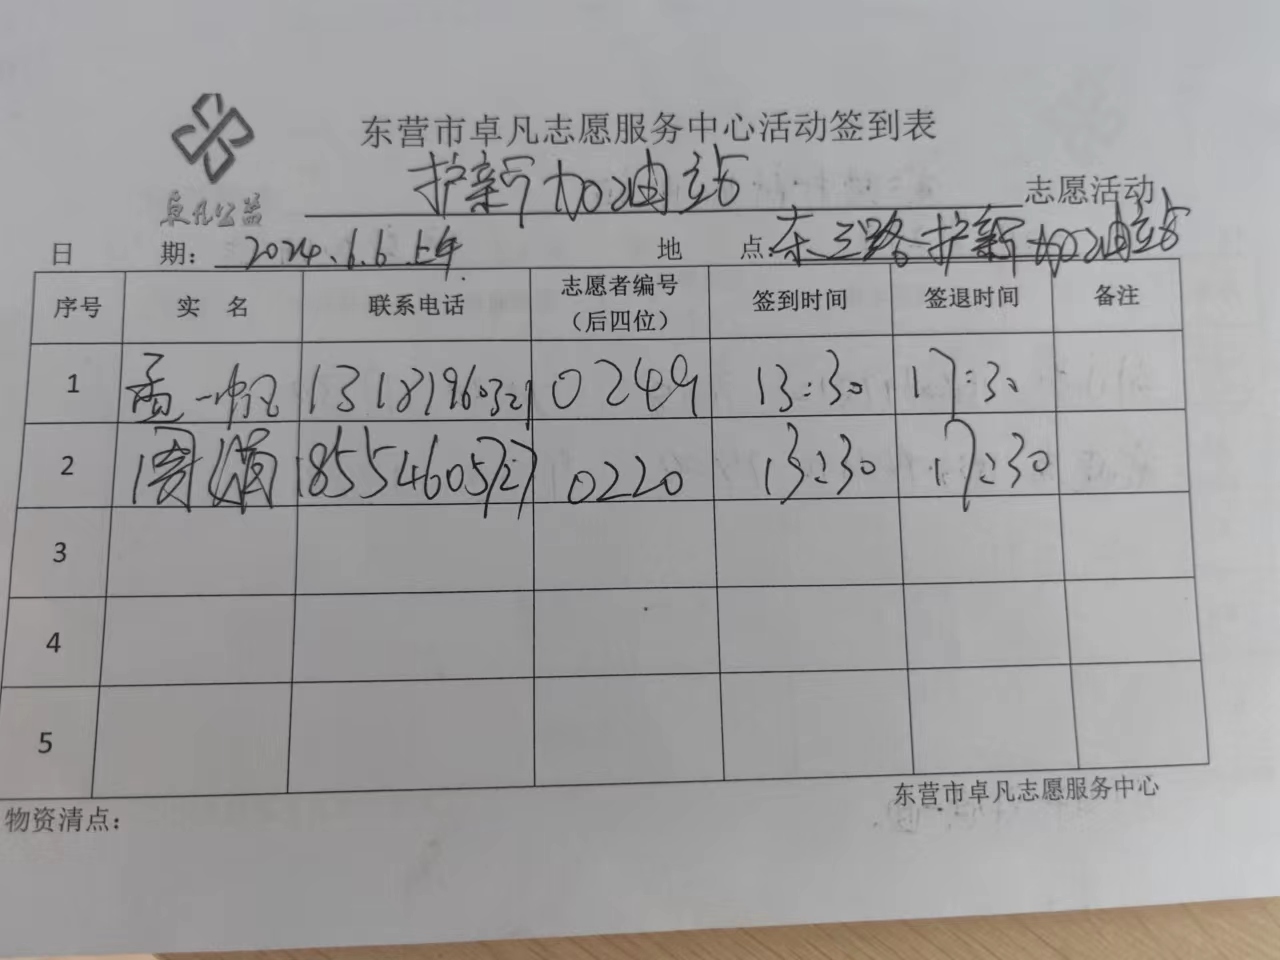 东营市卓凡志愿服务中心活动签到表
卓凡公益
护新加油站 志愿活动
日期: 2024.6.6.上午 地点 东三路护新加油站
序号 实名 联系电话 志愿者编号(后四位) 签到时间 签退时间 备注
1 孟一帆 13181960321 0249 13:30 17:30
2 周娟 18554605727 0220 13:30 17:30
3
4
5
东营市卓凡志愿服务中心
物资清点: